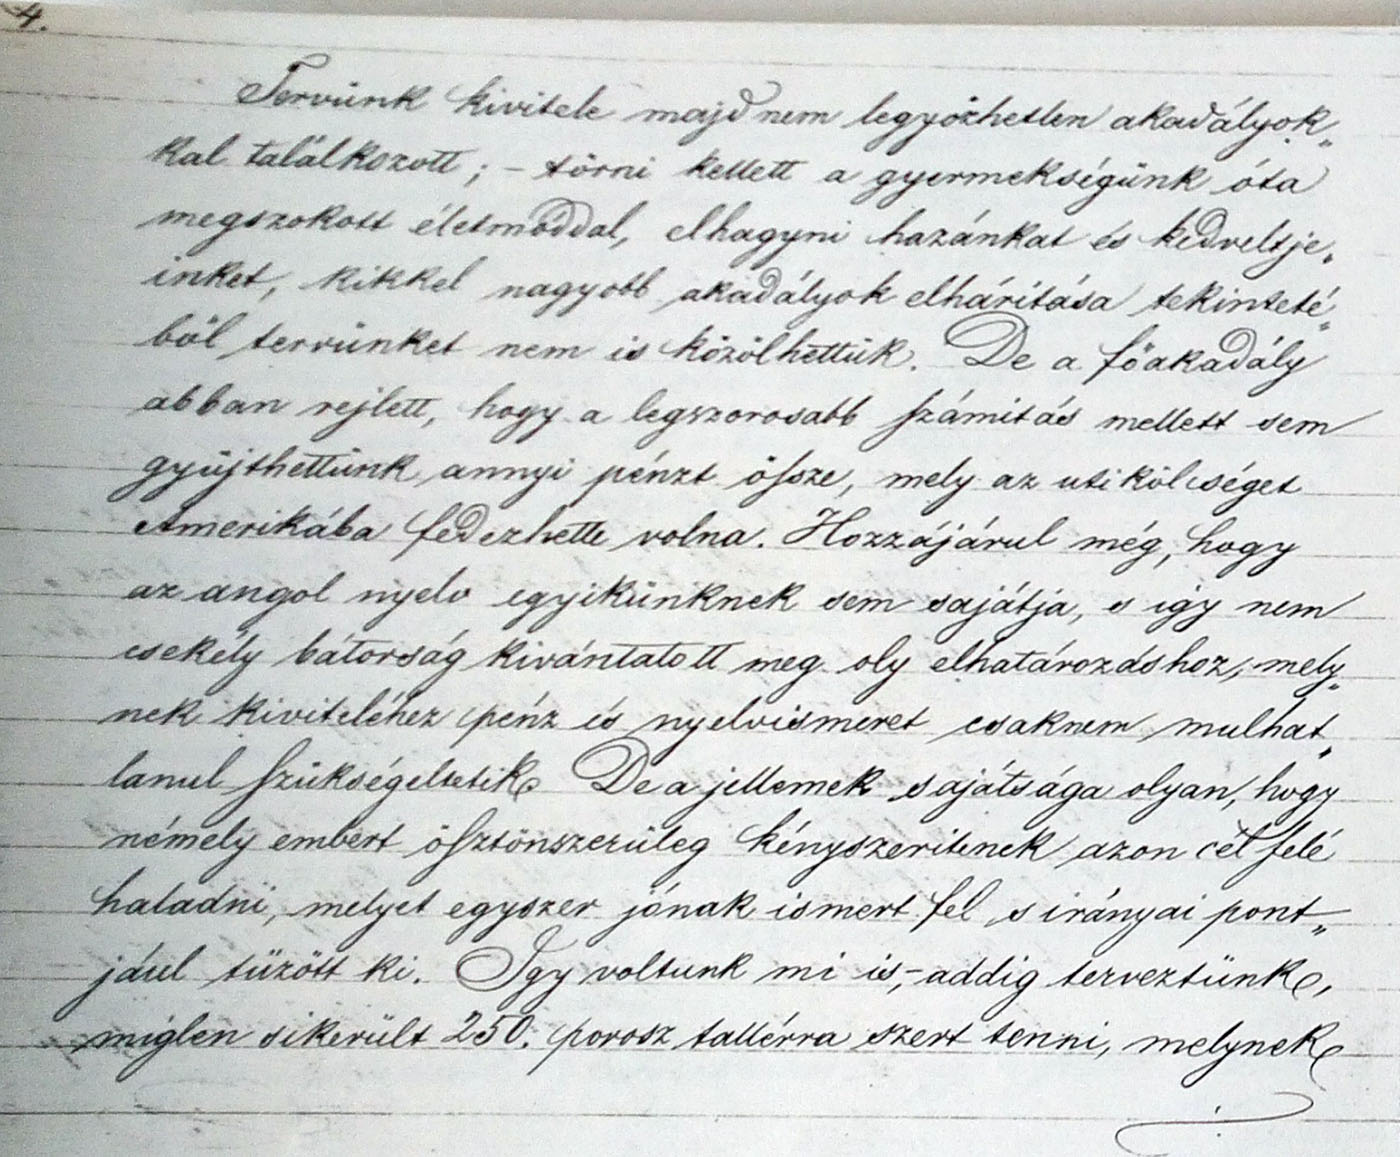 4.
Tervünk kivitele majd nem legyőzhetlen akadályok„
kal találkozott; – törni kellett a gyermekségünk óta
megszokott életmóddal, elhagyni hazánkat és kedveltje„
inket, kikkel nagyobb akadályok elháritása tekinteté„
ből tervünket nem is közölhettük. De a főakadály
abban rejlett, hogy a legszorosabb számitás mellett sem
gyüjthettünk annyi pénzt össze, mely az utikölséget
Amerikába fedezhette volna. Hozzájárul még, hogy
az angol nyelv egyikünknek sem sajátja, s igy nem
csekély bátorság kivántatott meg oly elhatározáshoz, mely„
nek kiviteléhez pénz és nyelvismeret csaknem mulhat„
lanul szükségeltetik. De a jellemek sajátsága olyan, hogy
némely embert ösztönszerüleg kényszeritenek azon cél felé
haladni, melyet egyszer jónak ismert fel s irányai pont„
jául tüzött ki. Igy voltunk mi is, – addig terveztünk,
miglen sikerült 250. porosz tallérra szert tenni, melynek